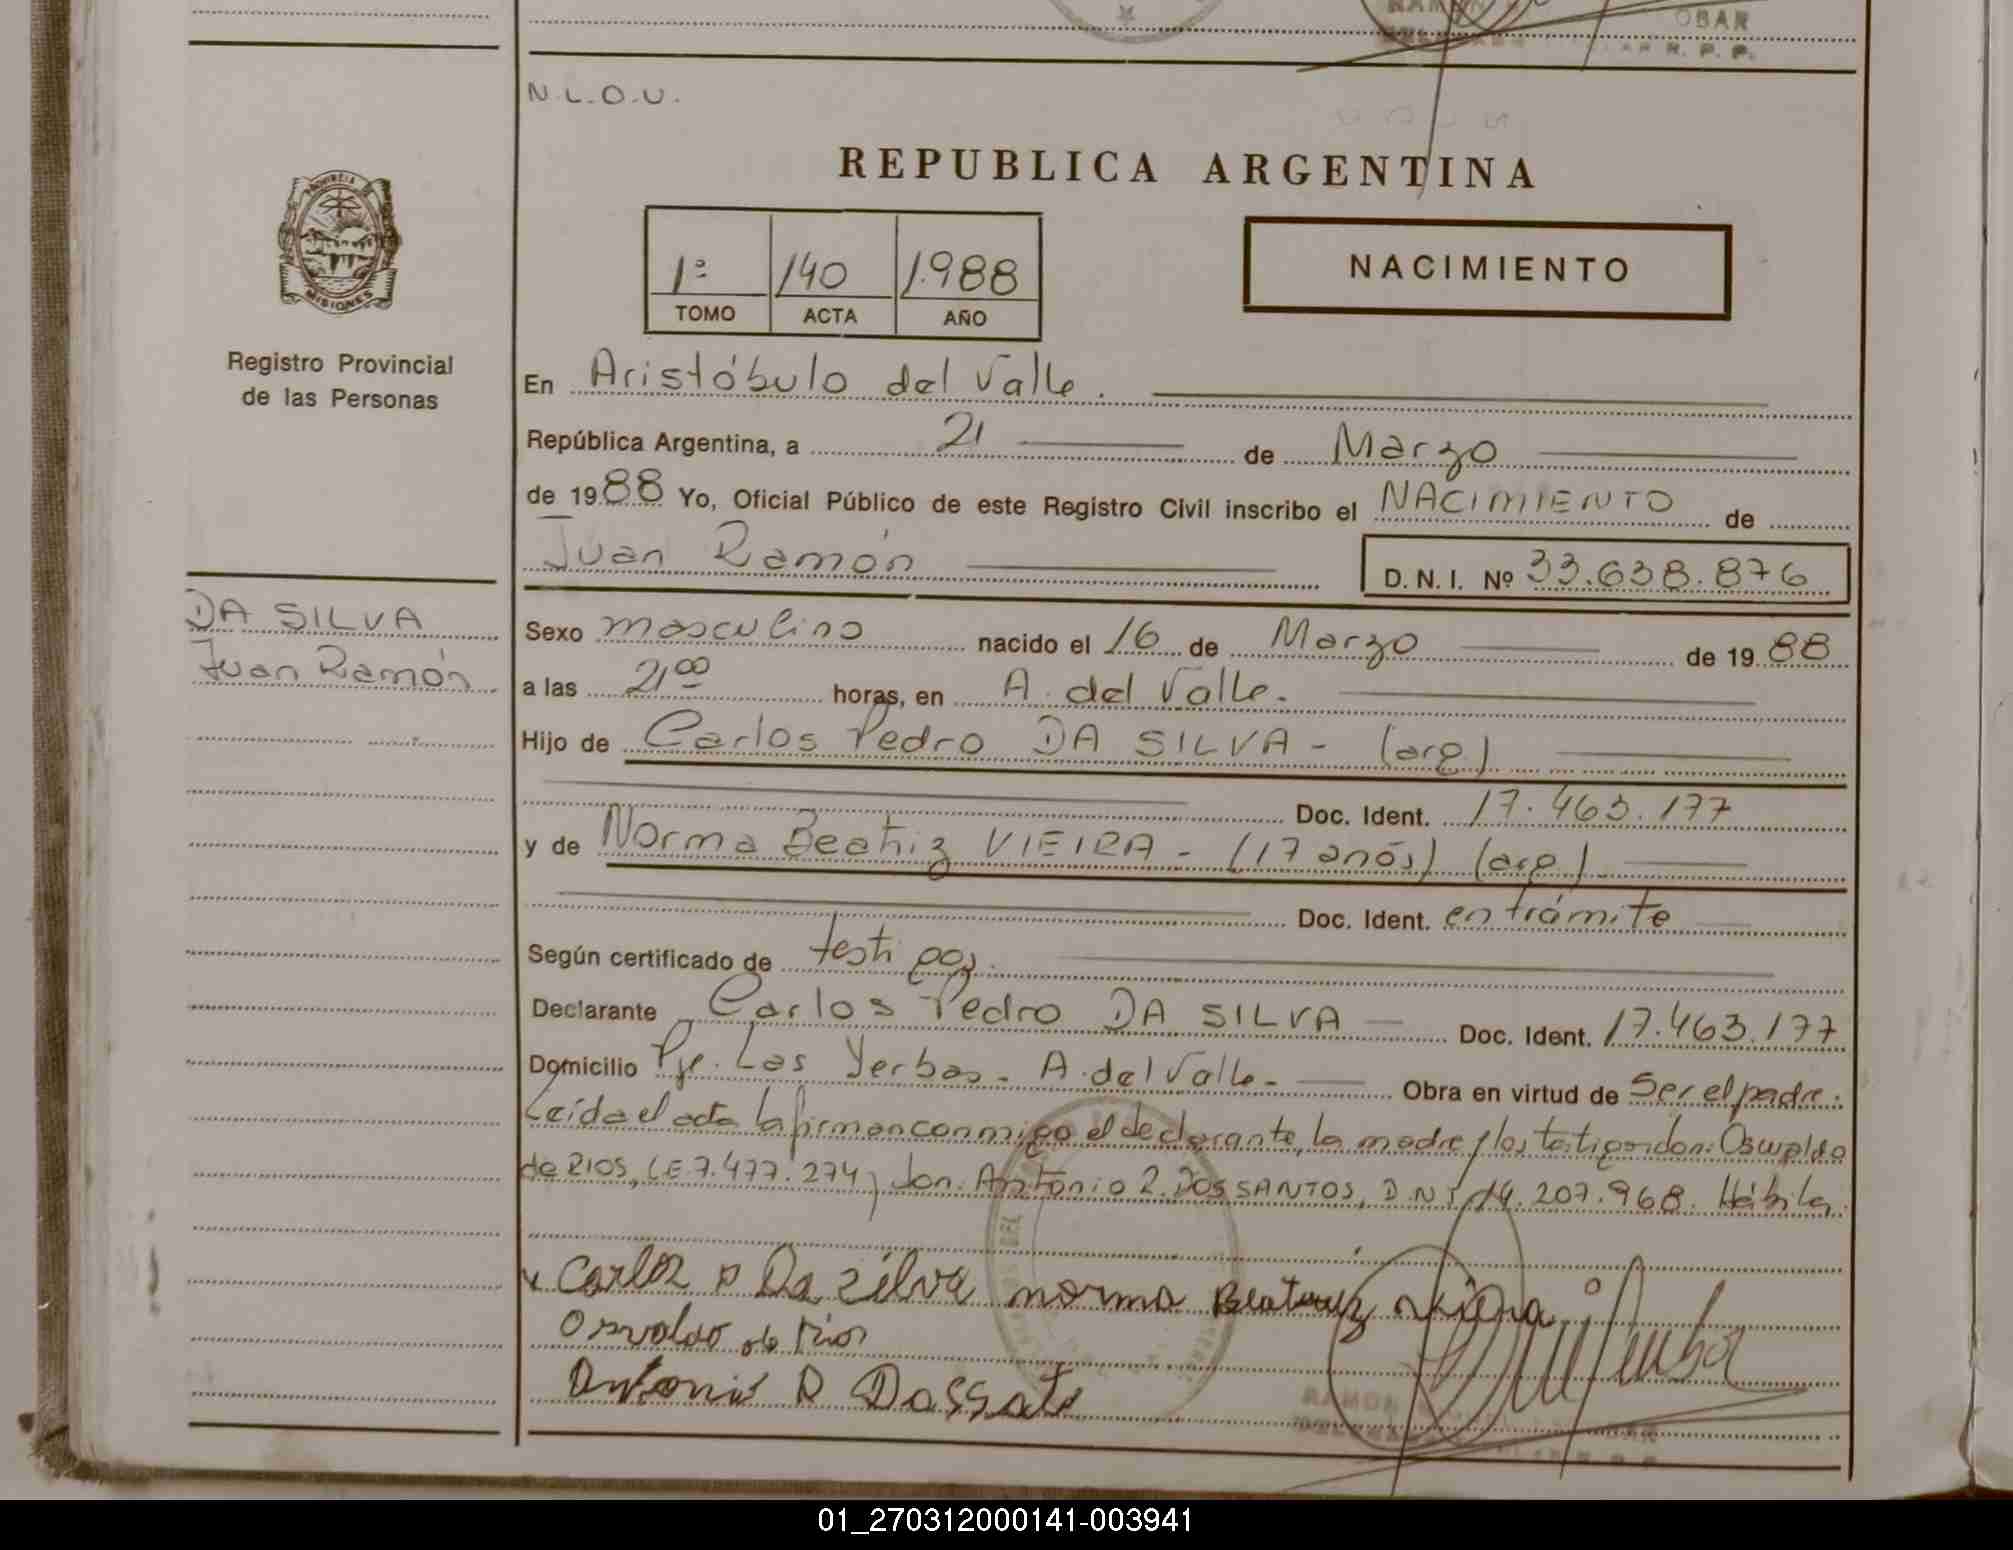 OBAR
R. P. P.
N.L.O.U.
REPUBLICA ARGENTINA
PROVINCIA
MISIONES
1º 140 1.988
TOMO ACTA AÑO
NACIMIENTO
Registro Provincial
de las Personas
En Aristóbulo del Valle.
República Argentina, a 21 de Marzo
de 1988 Yo, Oficial Público de este Registro Civil inscribo el NACIMIENTO de
Juan Ramón D. N. I. Nº 33.638.876
DA SILVA
Juan Ramón
Sexo masculino nacido el 16 de Marzo de 1988
a las 21,00 horas, en A. del Valle.
Hijo de Carlos Pedro DA SILVA - (arg.)
Doc. Ident. 17.463.177
y de Norma Beatriz VIEIRA - (17 anós) (arg.)
Doc. Ident. en trámite
Según certificado de testigos.
Declarante Carlos Pedro DA SILVA Doc. Ident. 17.463.177
Domicilio Pje. Las Yerbas - A. del Valle - Obra en virtud de Ser el padre.
Leída el acta la firman conmigo el declarante, la madre y los testigos don: Oswaldo
de RIOS, LE 7.477.274 y don. Antonio R. DOS SANTOS, D.N.I. 14.207.968. Hábiles.
Carlos P Da Silva norma Beatriz vieira
Osvaldo de Rios
Antonio R Dossato
01_270312000141-003941